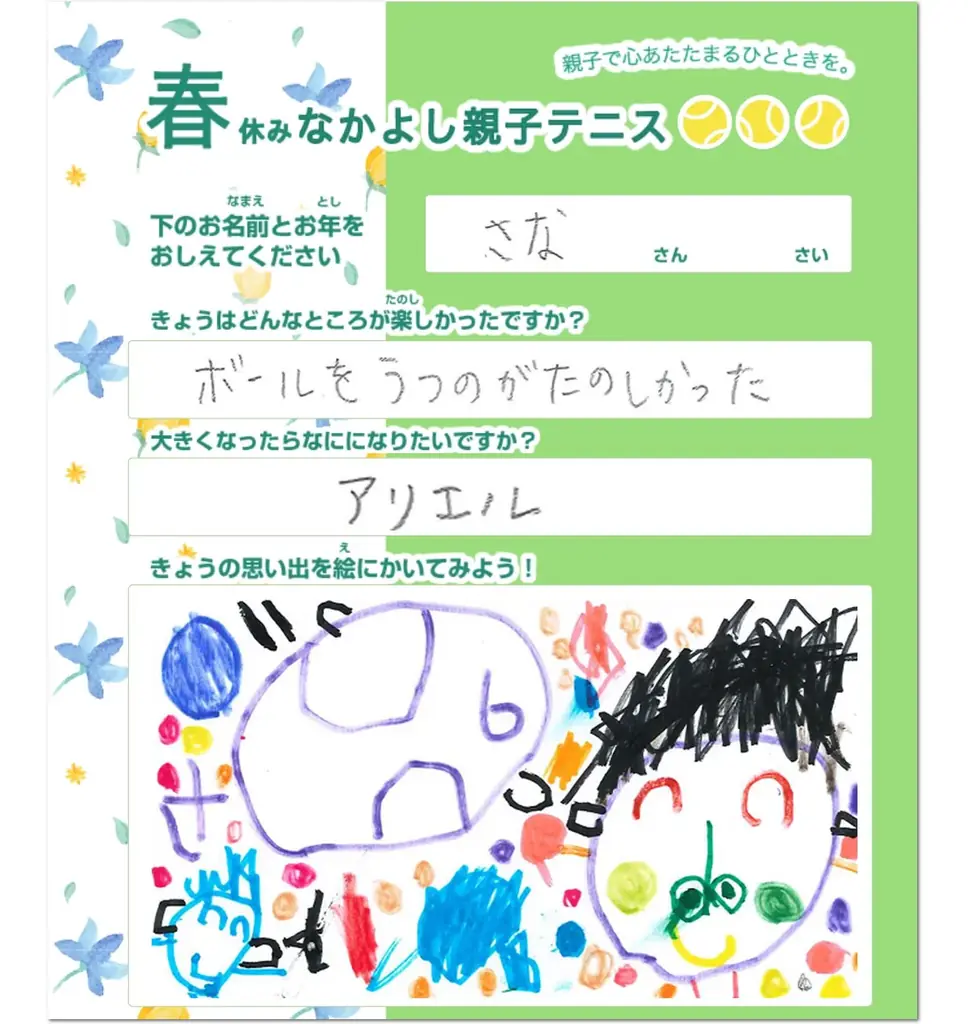 親子で心あたたまるひとときを。
春休みなかよし親子テニス
なまえ とし
下のお名前とお年を
おしえてください
さな さん さい
たのし
きょうはどんなところが楽しかったですか?
ボールをうつのがたのしかった
大きくなったらなにになりたいですか?
アリエル
え
きょうの思い出を絵にかいてみよう!